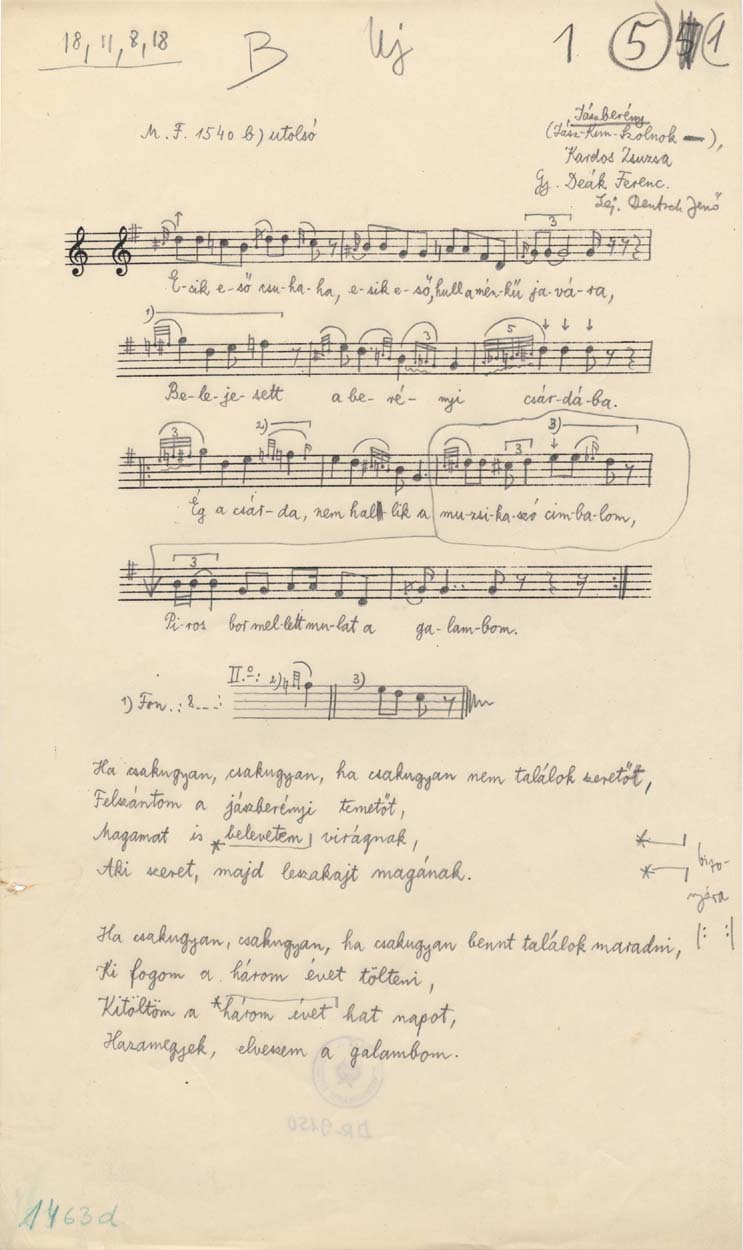 18, 11, 8, 18 B Uj 1 5 1
M. F. 1540 b) utolsó
Jászberény
(Jász-Kun-Szolnok —),
Kardos Zsuzsa
Gy. Deák Ferenc.
Lej. Deutsch Jenő
3
E-sik e-ső csu-ha-ha, e-sik e-ső, hull a mén-kű ja-vá-ra,
1) 3 5
Be-le-je-sett a be-ré-nyi csár-dá-ba.
3 2) 3 3)
Ég a csár-da, nem hal-lik a mu-zsi-ka-szó cim-ba-lom,
3
Pi-ros bor mel-lett mu-lat a ga-lam-bom.
1) Fon.: 8---: II.o: 2) 3)
Ha csakugyan, csakugyan, ha csakugyan nem találok szeretőt,
Felszántom a jászberényi temetőt,
Magamat is *belevetem virágnak,
Aki szeret, majd leszakajt magának.
* * bizo-
nyára
Ha csakugyan, csakugyan, ha csakugyan bennt találok maradni, |: :|
Ki fogom a három évet tölteni,
Kitöltöm a *három évet hat napot,
Hazamegyek, elveszem a galambom.
DR-9150
1463d